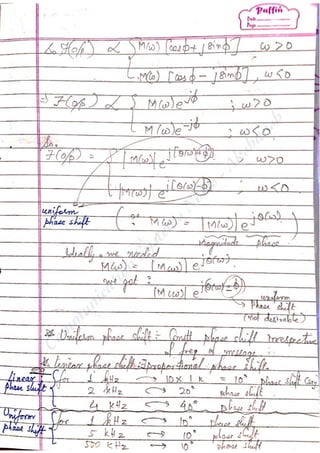 Puffin
Date
Page
↳ F(o/p) ∝ { M(ω) [cosϕ + jsinϕ] ω>0
M(ω) [cosϕ - jsinϕ] , ω<0
⇒ F(o/p) ∝ { M(ω)e^jϕ ; ω>0
M(ω)e^-jϕ ; ω<0
So,
F(o/p) = { |M(ω)| e^j[θ(ω)+ϕ] ; ω>0
|M(ω)| e^j[θ(ω)-ϕ] ; ω<0
uniform
phase shift
(∵ M(ω) = |M(ω)| e^jθ(ω))
Magnitude Phase
Ideally, we needed
M(ω) = |M(ω)| e^jθ(ω)
we got :
|M(ω)| e^j(θ(ω)±ϕ)
uniform
↳ Phase shift
(not desirable)
※ Uniform phase shift :- Constt phase shift irrespective
of freq of message.
※ linear phase shift :- proportional phase shift.
Linear phase shift
for 1 kHz → 10 x 1 K = 10° phase shift
2 kHz → 20° phase shift
4 kHz → 40° phase shift
Uniform phase shift
for 1 kHz → 10° phase shift
5 kHz → 10° phase shift
500 kHz → 10° phase shift